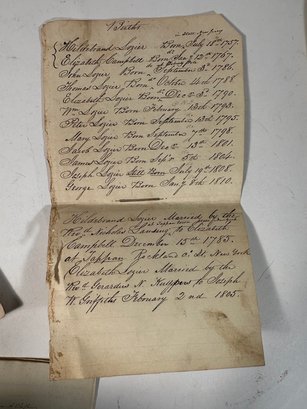 Births
in New Jersey
Hildebrand Lozier Born July 18th 1757.
Elizabeth Campbell Born Jany 12th 1767.
John Lozier Born September 8th 1786.
Thomas Lozier Born October 14th 1788.
Elizabeth Lozier Born Decr 8th 1790.
Wm Lozier Born February 18th 1793.
Peter Lozier Born September 18th 1795.
Mary Lozier Born September 7th 1798.
Jacob Lozier Born Decr 13th 1801.
James Lozier Born Sepr 5th 1804.
Joseph Lozier Still Born July 19th 1808.
George Lozier Born Jany 8th 1810.
Hildebrand Lozier Married by the
Revd. Nicholas Lansing to Elizabeth
Campbell December 15th 1785.
at Tappan Rockland Co. St. New York
Elizabeth Lozier Married by the
Revd. Gerardus A Kuypers to Joseph
W. Griffiths February 2nd 1805.